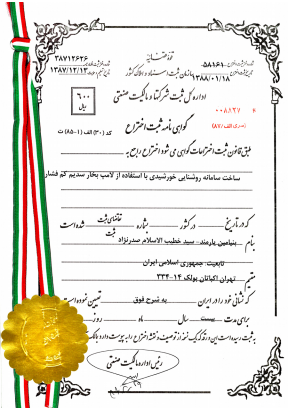 قوه قضائیه
سازمان ثبت اسناد و املاک کشور
۳۸۷۱۲۶۲۶
۱۳۸۷/۱۲/۱۳
۵۸۹۶۱
۱۳۸۸/۰۱/۱۸
اداره کل ثبت شرکتها و مالکیت صنعتی
۶۰۰
ریال
۰۰۸۸۲۷
(سری الف/۸۷)
گواهی نامه ثبت اختراع
کد (۳۰) الف (۱-۸۵) ت
طبق قانون ثبت اختراعات گواهی می شود اختراع راجع به
ساخت سامانه روشنایی خورشیدی با استفاده از لامپ بخار سدیم کم فشار
که در تاریخ در کشور بشماره تقاضای ثبت شده است
ثبت
بنام بنیامین یارمند- سید خطیب الاسلام صدرنژاد
تابعیت: جمهوری اسلامی ایران
مقیم تهران اکباتان بولک ۱۴-۳۳۴
که نشانی خود را در ایران به شرح فوق تعیین نموده است
برای مدت بیست سال ماه روز
به ثبت رسیده است این ورقه که یک نسخه از توصیف و نقشه اختراع را به پیوست دارد
رئیس اداره مالکیت صنعتی